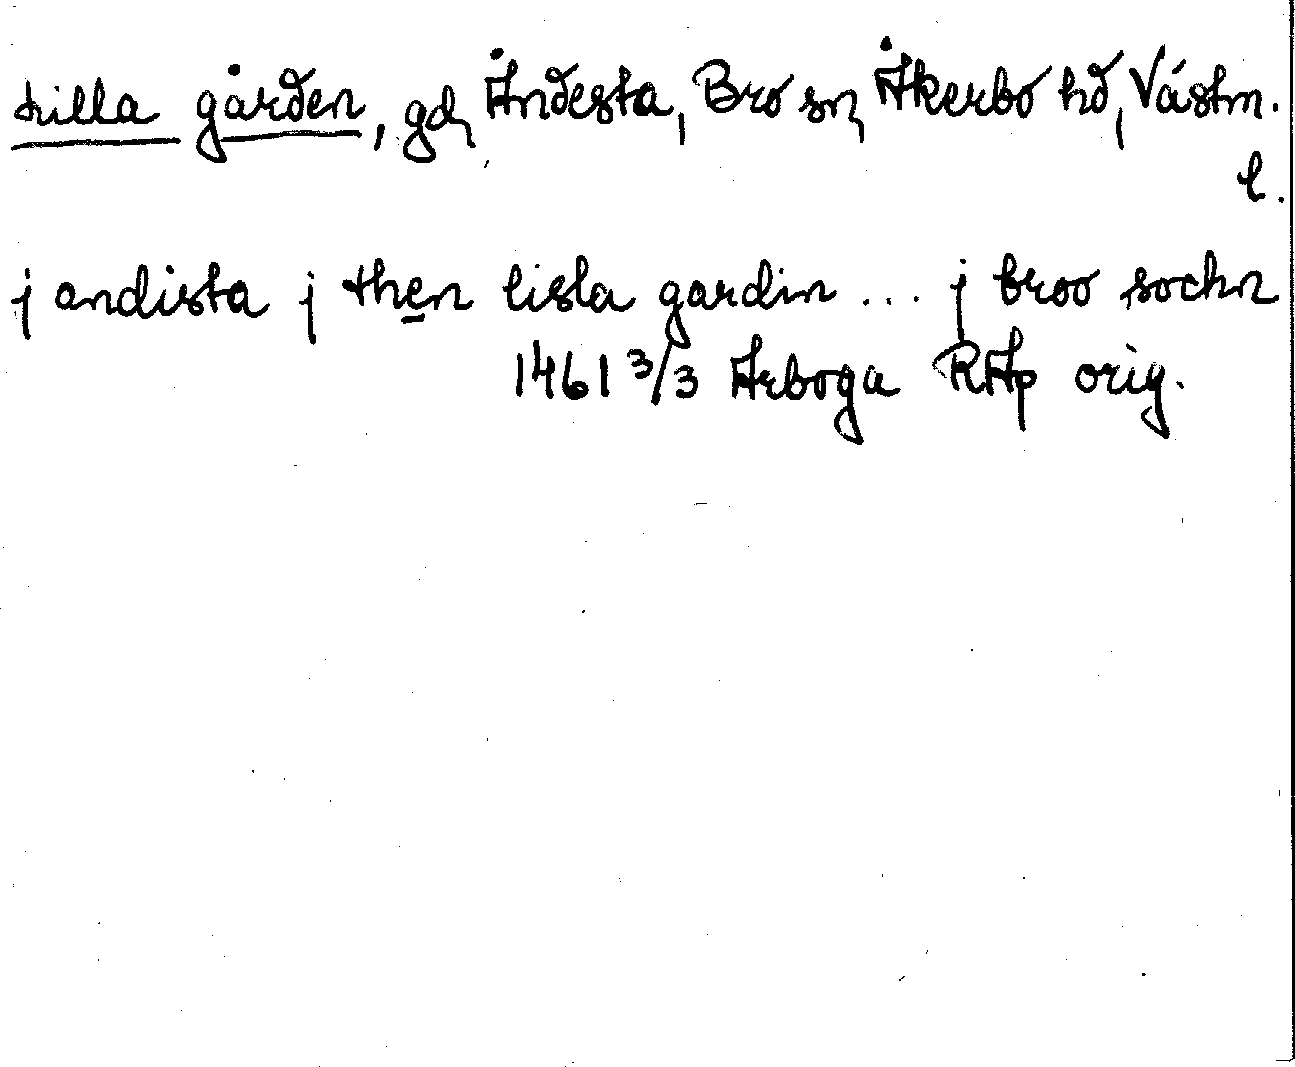 Lilla gården, gd, Åndesta, Bro sn, Åkerbo hd, Västm.
l.
j andista j then lisla gardin ... j broo sockn
1461 3/3 Arboga RAp orig.